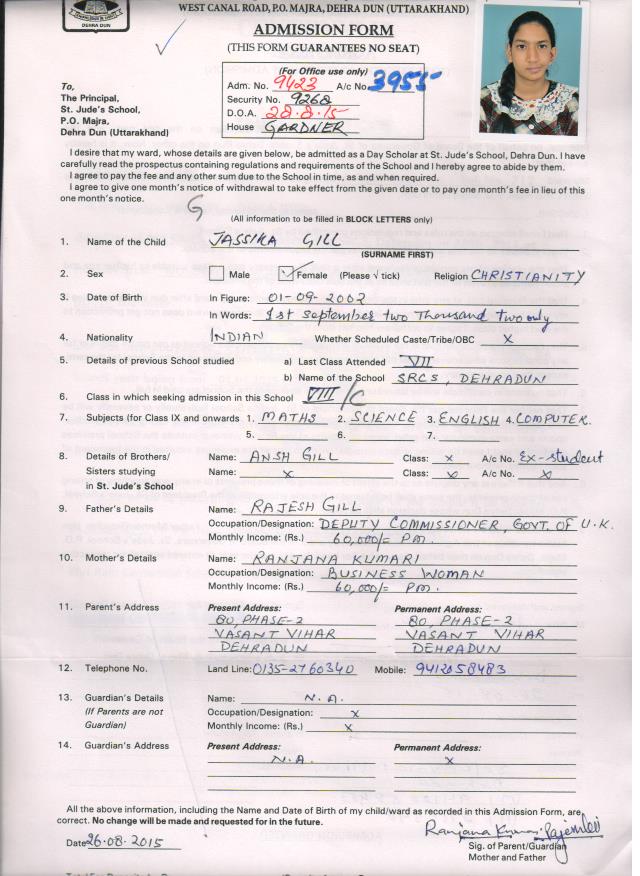 DEHRA DUN
WEST CANAL ROAD, P.O. MAJRA, DEHRA DUN (UTTARAKHAND)
ADMISSION FORM
(THIS FORM GUARANTEES NO SEAT)
(For Office use only)
Adm. No. 9423 A/c No. 3955
Security No. 9268
D.O.A. 28.8.15
House GARDNER
To,
The Principal,
St. Jude's School,
P.O. Majra,
Dehra Dun (Uttarakhand)
I desire that my ward, whose details are given below, be admitted as a Day Scholar at St. Jude's School, Dehra Dun. I have
carefully read the prospectus containing regulations and requirements of the School and I hereby agree to abide by them.
I agree to pay the fee and any other sum due to the School in time, as and when required.
I agree to give one month's notice of withdrawal to take effect from the given date or to pay one month's fee in lieu of this
one month's notice.
G
(All information to be filled in BLOCK LETTERS only)
1. Name of the Child JASSIKA GILL
(SURNAME FIRST)
2. Sex Male ✓ Female (Please √ tick) Religion CHRISTIANITY
3. Date of Birth In Figure: 01-09-2002
In Words: 1st September two Thousand two only
4. Nationality INDIAN Whether Scheduled Caste/Tribe/OBC x
5. Details of previous School studied a) Last Class Attended VII
b) Name of the School SRCS, DEHRADUN
6. Class in which seeking admission in this School VIII /C
7. Subjects (for Class IX and onwards 1. MATHS 2. SCIENCE 3. ENGLISH 4. COMPUTER.
5. 6. 7.
8. Details of Brothers/ Name: ANSH GILL Class: x A/c No. Ex-student
Sisters studying Name: x Class: x A/c No. x
in St. Jude's School
9. Father's Details Name: RAJESH GILL
Occupation/Designation: DEPUTY COMMISSIONER, GOVT. OF U.K.
Monthly Income: (Rs.) 60,000/= PM.
10. Mother's Details Name: RANJANA KUMARI
Occupation/Designation: BUSINESS WOMAN
Monthly Income: (Rs.) 60,000/= PM.
11. Parent's Address Present Address: Permanent Address:
80, PHASE-2 80, PHASE-2
VASANT VIHAR VASANT VIHAR
DEHRADUN DEHRADUN
12. Telephone No. Land Line: 0135-2760340 Mobile: 9412058483
13. Guardian's Details Name: N.A.
(If Parents are not Occupation/Designation: x
Guardian) Monthly Income: (Rs.) x
14. Guardian's Address Present Address: Permanent Address:
N.A. x
All the above information, including the Name and Date of Birth of my child/ward as recorded in this Admission Form, are
correct. No change will be made and requested for in the future.
Date 26.08.2015
Ranjana Kumari
Sig. of Parent/Guardian
Mother and Father